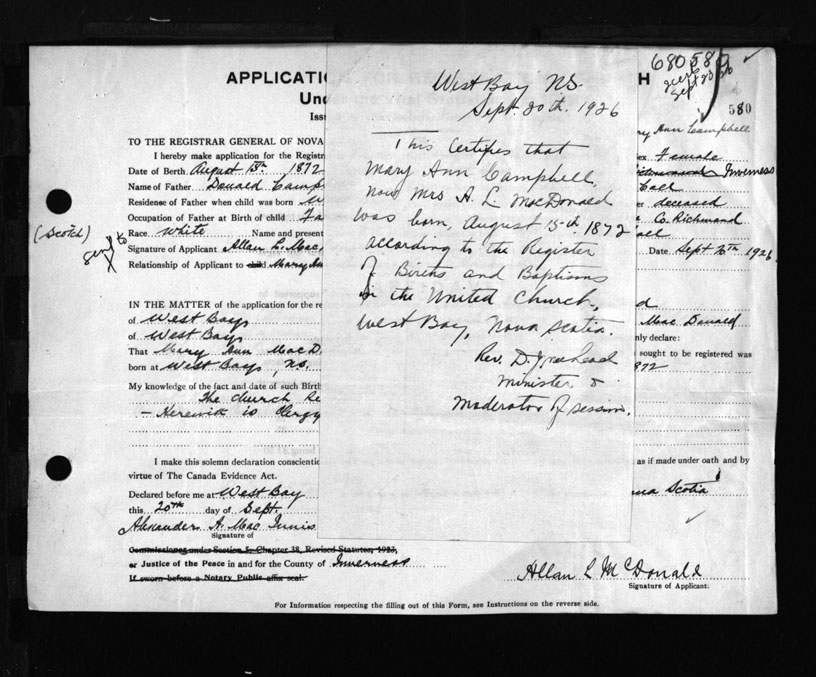 680580
Sept 20
580
APPLICATI H
Und
Iss
TO THE REGISTRAR GENERAL OF NOVA
I hereby make application for the Registr
Date of Birth August 15th 1872
Name of Father Donald Camp
Residence of Father when child was born
Occupation of Father at Birth of child Fa
(Scotch)
Race White Name and present
Signature of Applicant Allan L. Mac
Relationship of Applicant to child Mary An
IN THE MATTER of the application for the re
of West Bay
of West Bay
That Mary Ann Mac D
born at West Bay, N.S.
My knowledge of the fact and date of such Birth
The church Re
Herewith is Clergy
I make this solemn declaration conscientio
virtue of The Canada Evidence Act.
Declared before me at West Bay
this 20th day of Sept.
Alexander A. Mac Innis
Signature of
Commissioner under Section 5, Chapter 38, Revised Statutes, 1923,
or Justice of the Peace in and for the County of Inverness
If sworn before a Notary Public affix seal.
West Bay N.S.
Sept. 20th. 1926
This Certifies that
Mary Ann Campbell,
now Mrs A. L. MacDonald
was born, August 15th. 1872
according to the Register
of Births and Baptisms
in the United Church,
West Bay, Nova Scotia.
Rev. D.
Minister &
Moderator of Session.
ry Ann Campbell
Female
Inverness
deceased
Co. Richmond
Date Sept 20th 1926
Mac Donald
nly declare:
sought to be registered was
872
as if made under oath and by
ova Scotia
Allan L McDonald
Signature of Applicant.
For Information respecting the filling out of this Form, see Instructions on the reverse side.